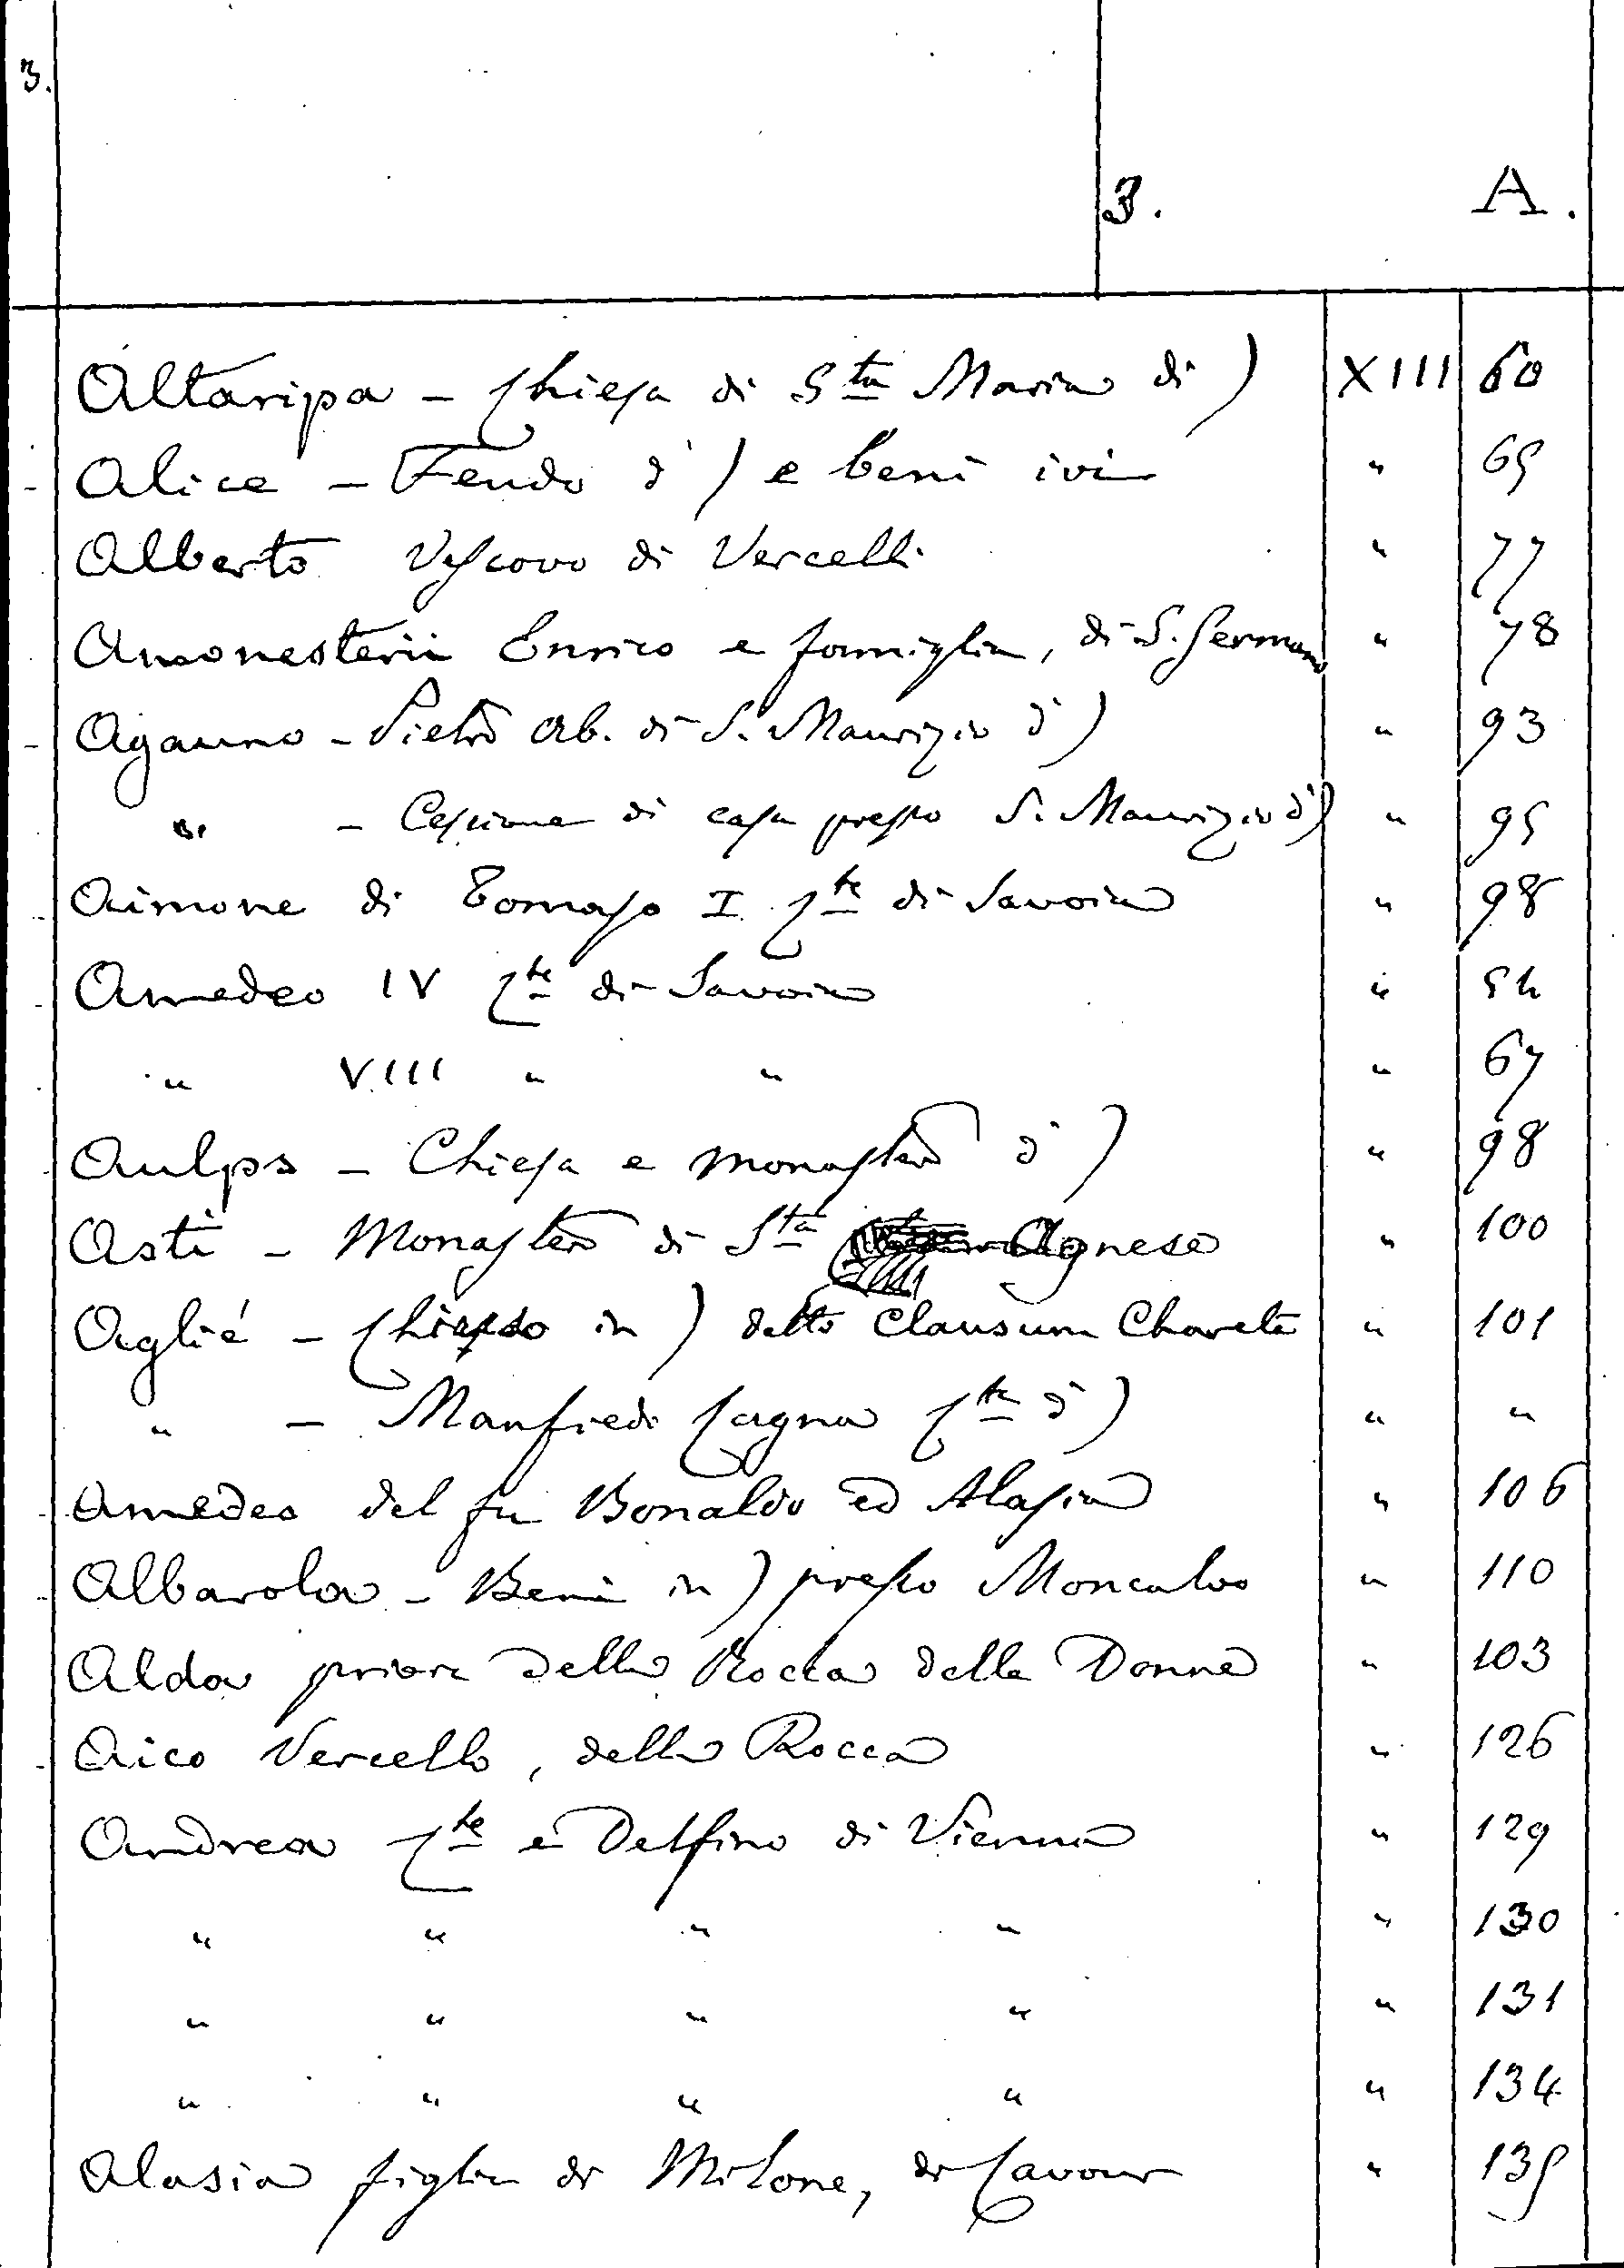 3.
3. A.
Altaripa - Chiesa di Sta Maria di) XIII 60
Alice - Feudo d') e beni ivi " 65
Alberto Vescovo di Vercelli " 77
Amonesterii Enrico e famiglia, di S. Germano " 78
Agauno - Pietro Ab. di S. Maurizio d') " 93
" - Cessione di casa presso S. Maurizio d') " 95
Aimone di Tomaso I Cte di Savoia " 98
Amedeo IV Cte di Savoia " 54
" VIII " " " 67
Aulps - Chiesa e monastero d') " 98
Asti - Monastero di Sta Agnese " 100
Aglié - Chiosso in) detto Clausum Chareti " 101
" - Manfredi Cagna Cte d') " "
Amedeo del fu Bonaldo ed Alasia " 106
Albarola - Beni in) presso Moncalvo " 110
Alda priora della Rocca delle Donne " 103
Aico Vercello, della Rocca " 126
Andrea Cte e Delfino di Vienna " 129
" " " " " 130
" " " " " 131
" " " " " 134
Alasia figlia di Milone, di Cavour " 135